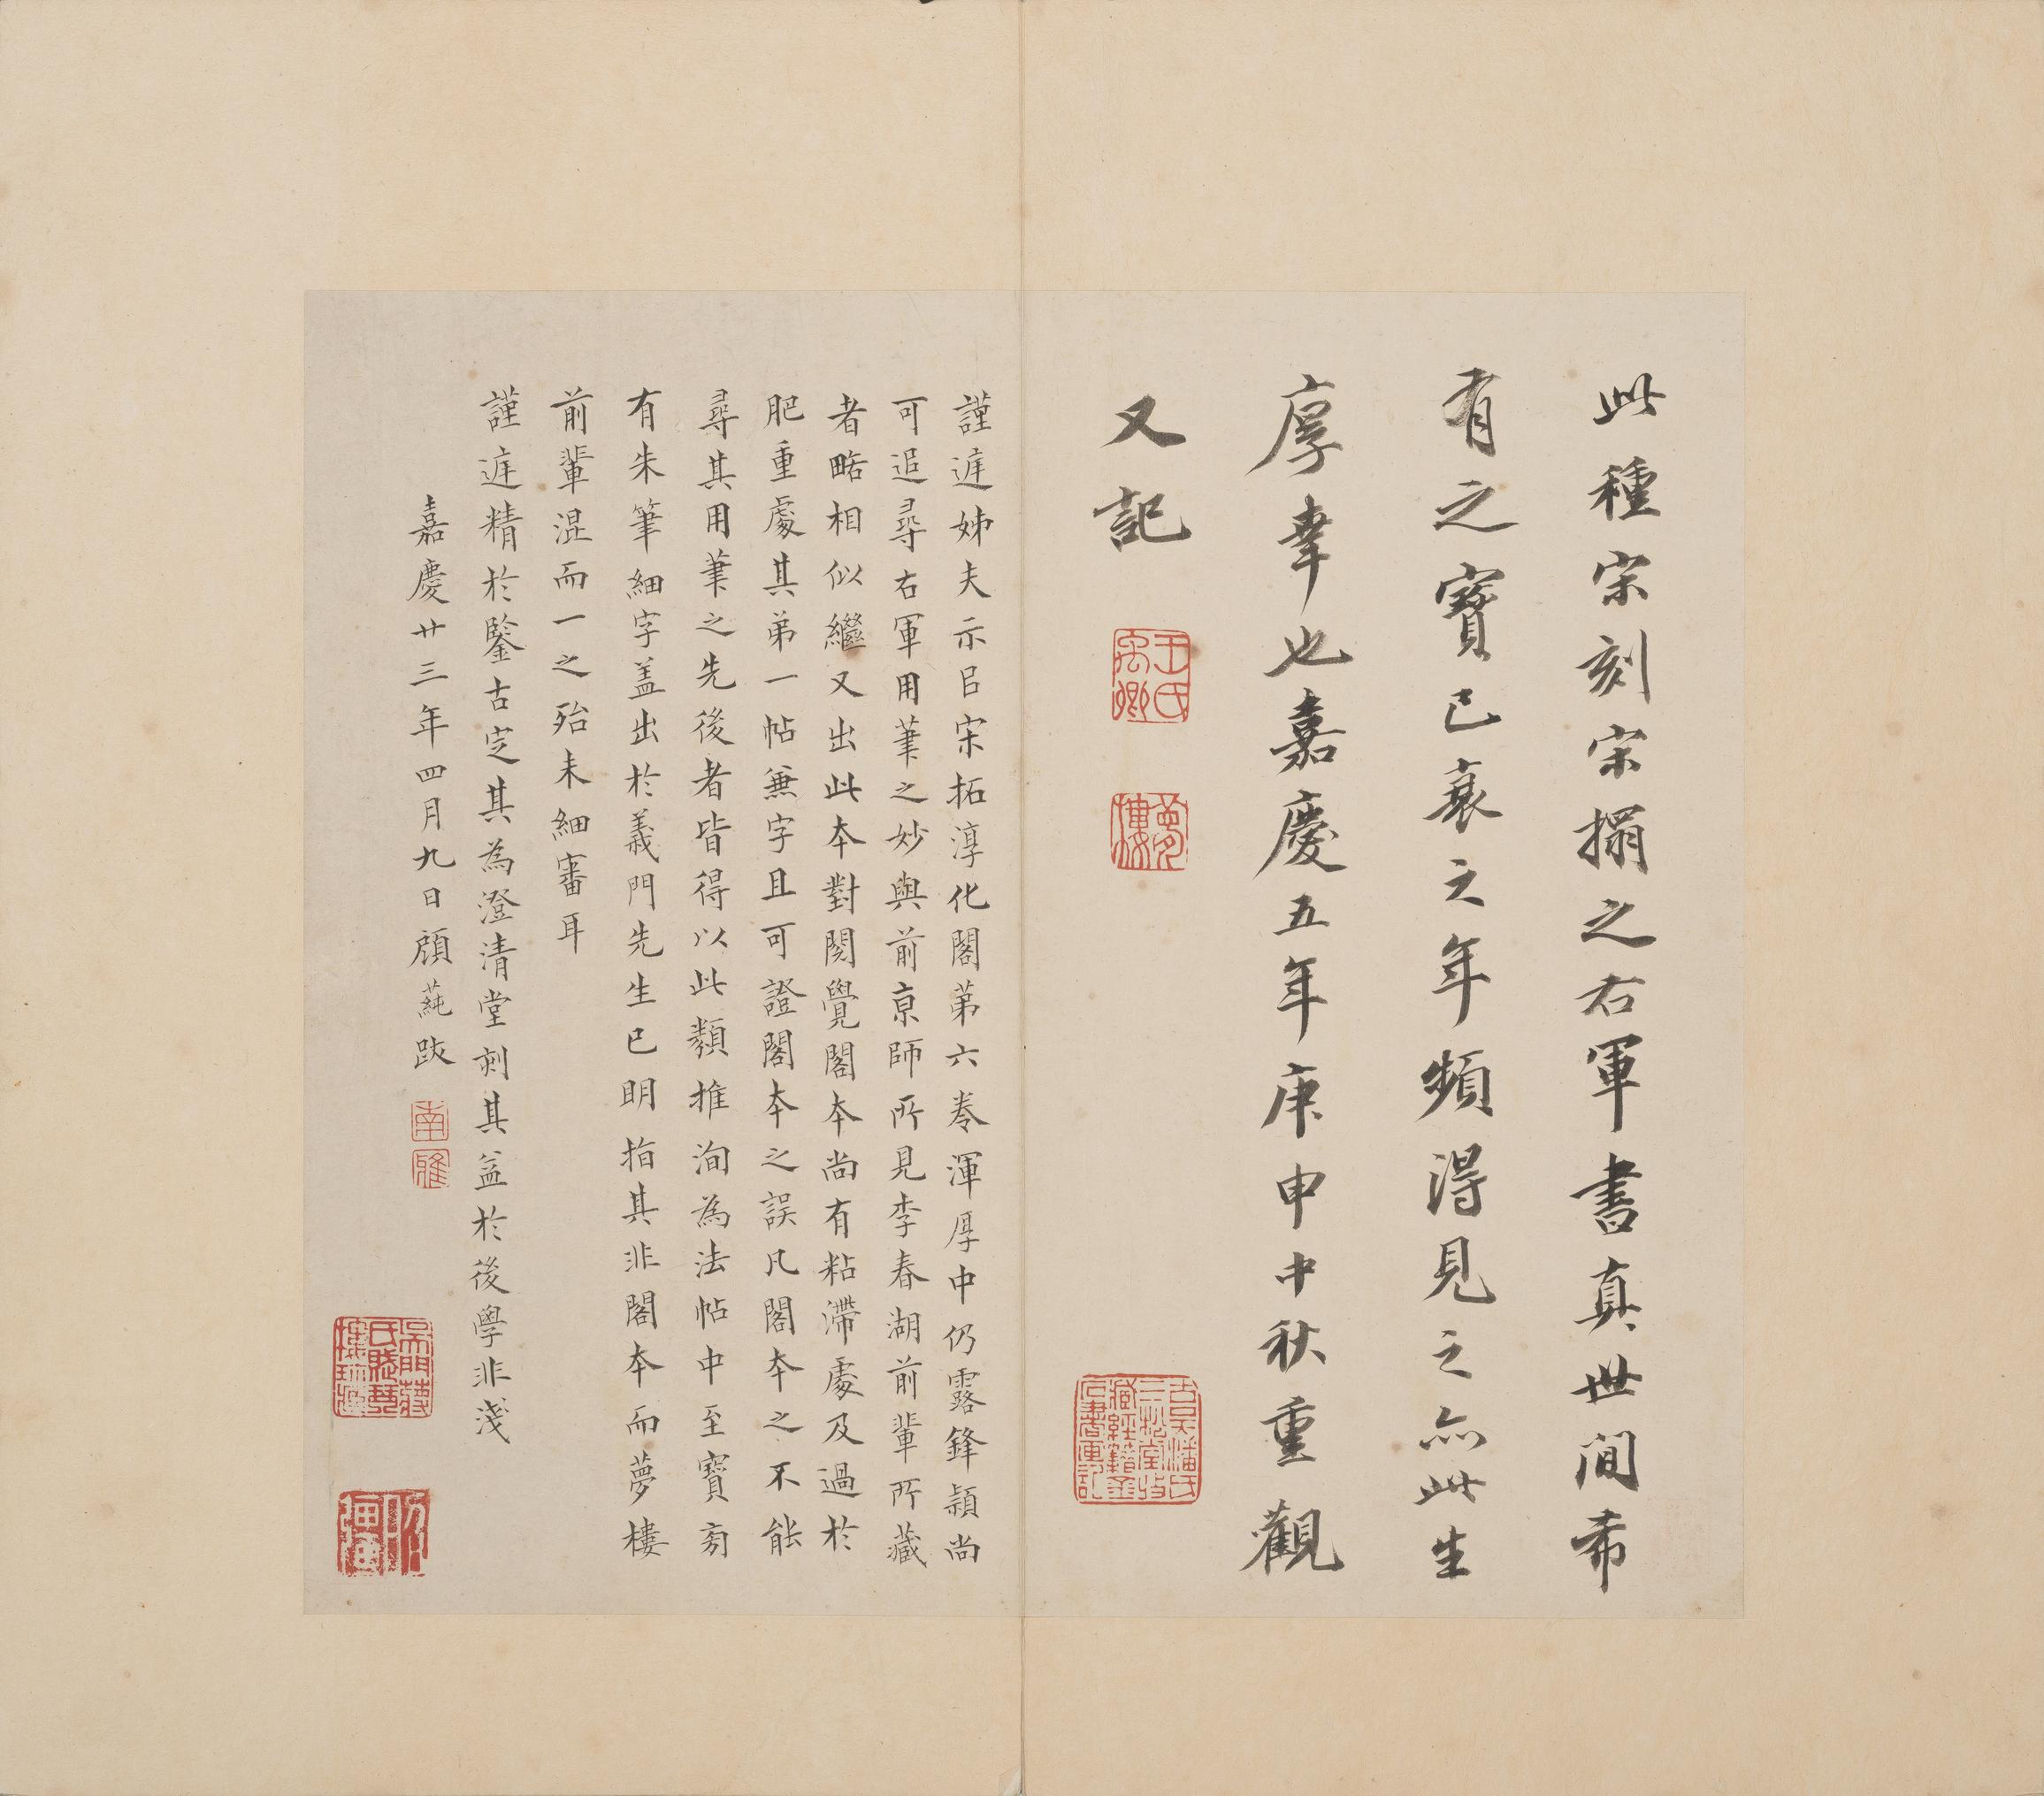 此種宋刻宋搨之右軍書真世間希
有之寶已衰之年頻得見之亦此生
厚幸也嘉慶五年庚申中秋重觀
又記
王氏禹卿
夢樓
謹庭姊夫示㠯宋拓淳化閣第六卷渾厚中仍露鋒穎尚
可追尋右軍用筆之妙與前京師所見李春湖前輩所藏
者略相似繼又出此本對閱覺閣本尚有粘滯處及過於
肥重處其弟一帖無字且可證閣本之誤凡閣本之不能
尋其用筆之先後者皆得以此類推洵為法帖中至寶旁
有朱筆細字盖出於義門先生已明指其非閣本而夢樓
前輩混而一之殆未細審耳
謹庭精於鑒古定其為澄清堂刻其益於後學非淺
嘉慶廿三年四月九日顧蒓跋
南
雅